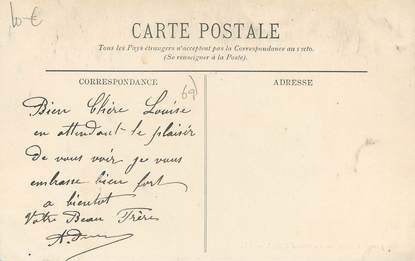 10-€
CARTE POSTALE
Tous les Pays étrangers n'acceptent pas la Correspondance au recto.
(Se renseigner à la Poste).
CORRESPONDANCE
ADRESSE
69
Bien Chère Louise
en attendant le plaisir
de vous voir je vous
embrasse bien fort
a bientot
Votre Beau Frère